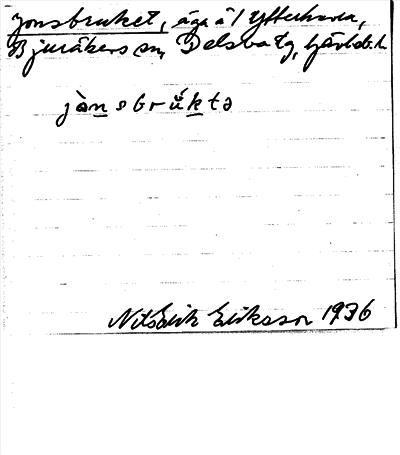 Jonsbruket, äga å 1 Ytterhavra,
Bjuråkers sn, Delsbo tg, Gävleb. l.
jɷ̀nsbrúktə
Nils Erik Eriksson 1936